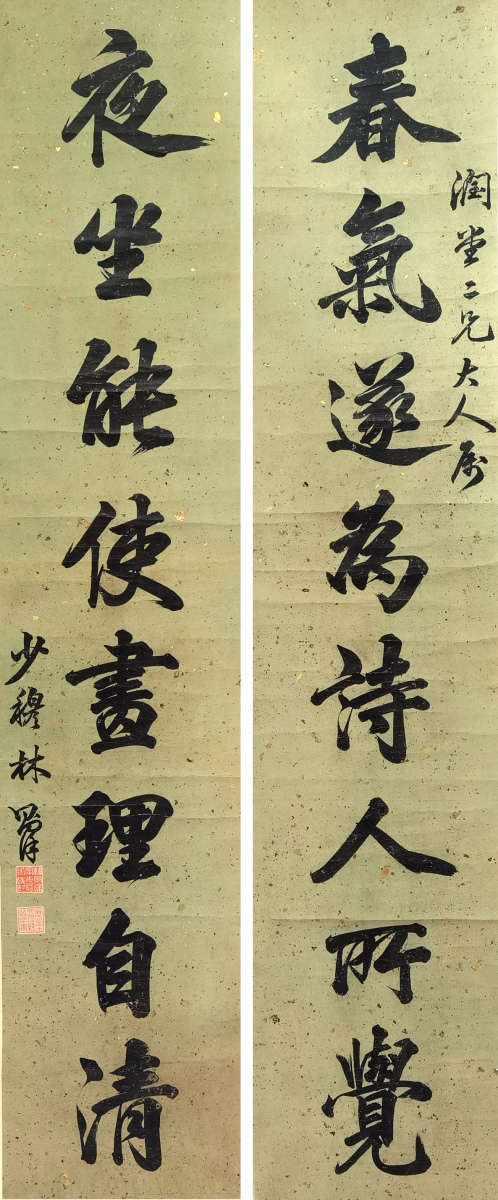 潤堂二兄大人属
春氣遂為詩人所覺
夜坐能使畫理自清
少穆林